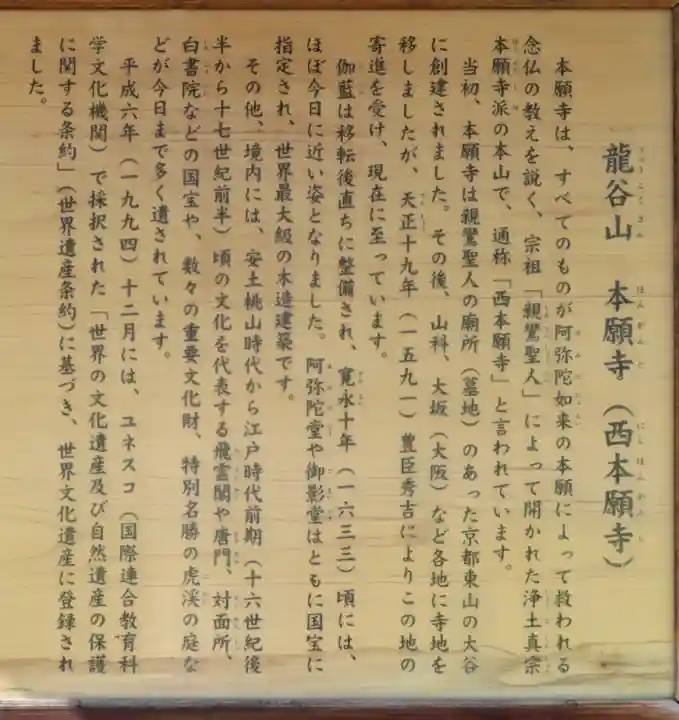 龍谷山　本願寺（西本願寺）
本願寺は、すべてのものが阿弥陀如来の本願によって救われる
念仏の教えを説く、宗祖「親鸞聖人」によって開かれた浄土真宗
本願寺派の本山で、通称「西本願寺」と言われています。
当初、本願寺は親鸞聖人の廟所（墓地）のあった京都東山の大谷
に創建されました。その後、山科、大坂（大阪）など各地に寺地を
移しましたが、天正十九年（一五九一）豊臣秀吉によりこの地の
寄進を受け、現在に至っています。
伽藍は移転後直ちに整備され、寛永十年（一六三三）頃には、
ほぼ今日に近い姿となりました。阿弥陀堂や御影堂はともに国宝に
指定され、世界最大級の木造建築です。
その他、境内には、安土桃山時代から江戸時代前期（十六世紀後
半から十七世紀前半）頃の文化を代表する飛雲閣や唐門、対面所、
白書院などの国宝や、数々の重要文化財、特別名勝の虎渓の庭な
どが今日まで多く遺されています。
平成六年（一九九四）十二月には、ユネスコ（国際連合教育科
学文化機関）で採択された「世界の文化遺産及び自然遺産の保護
に関する条約」（世界遺産条約）に基づき、世界文化遺産に登録され
ました。